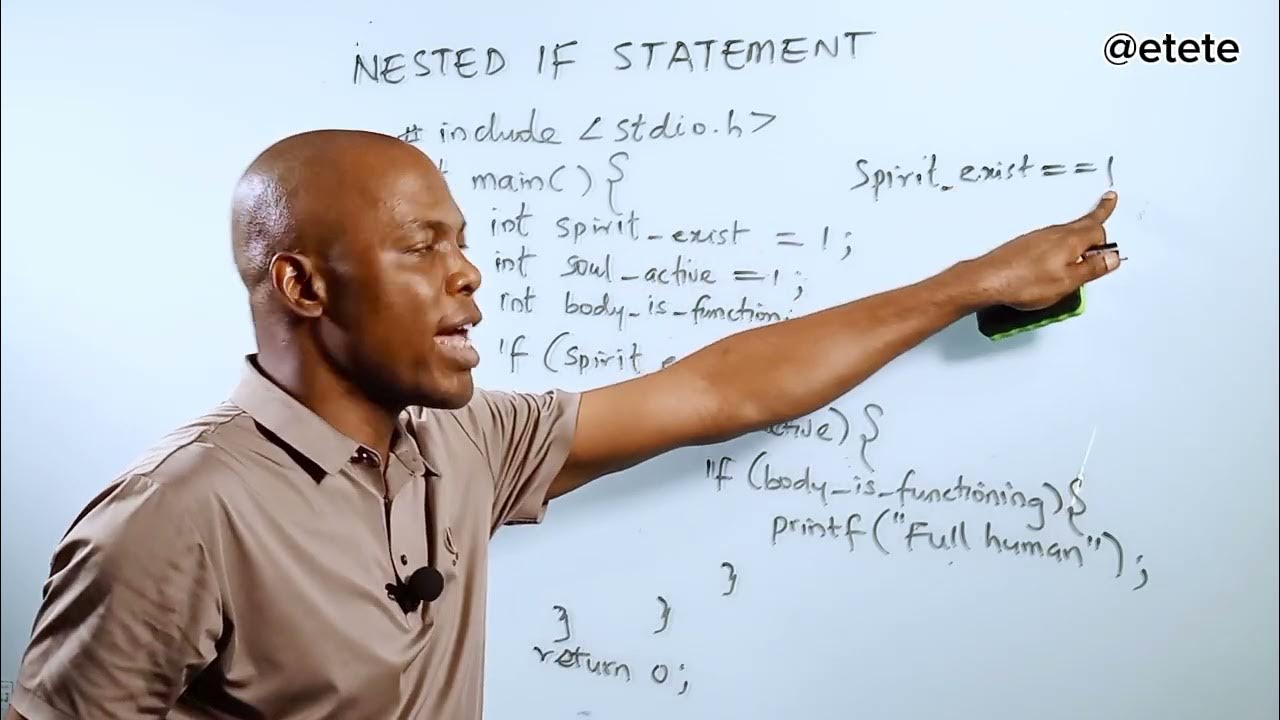 @etete
NESTED IF STATEMENT
# include <stdio.h>
main() {
Spirit_exist == 1
int spirit_exist = 1;
int soul_active = 1;
int body_is_function
if (Spirit
if (body_is_functioning) {
printf("Full human");
}
} }
return 0;